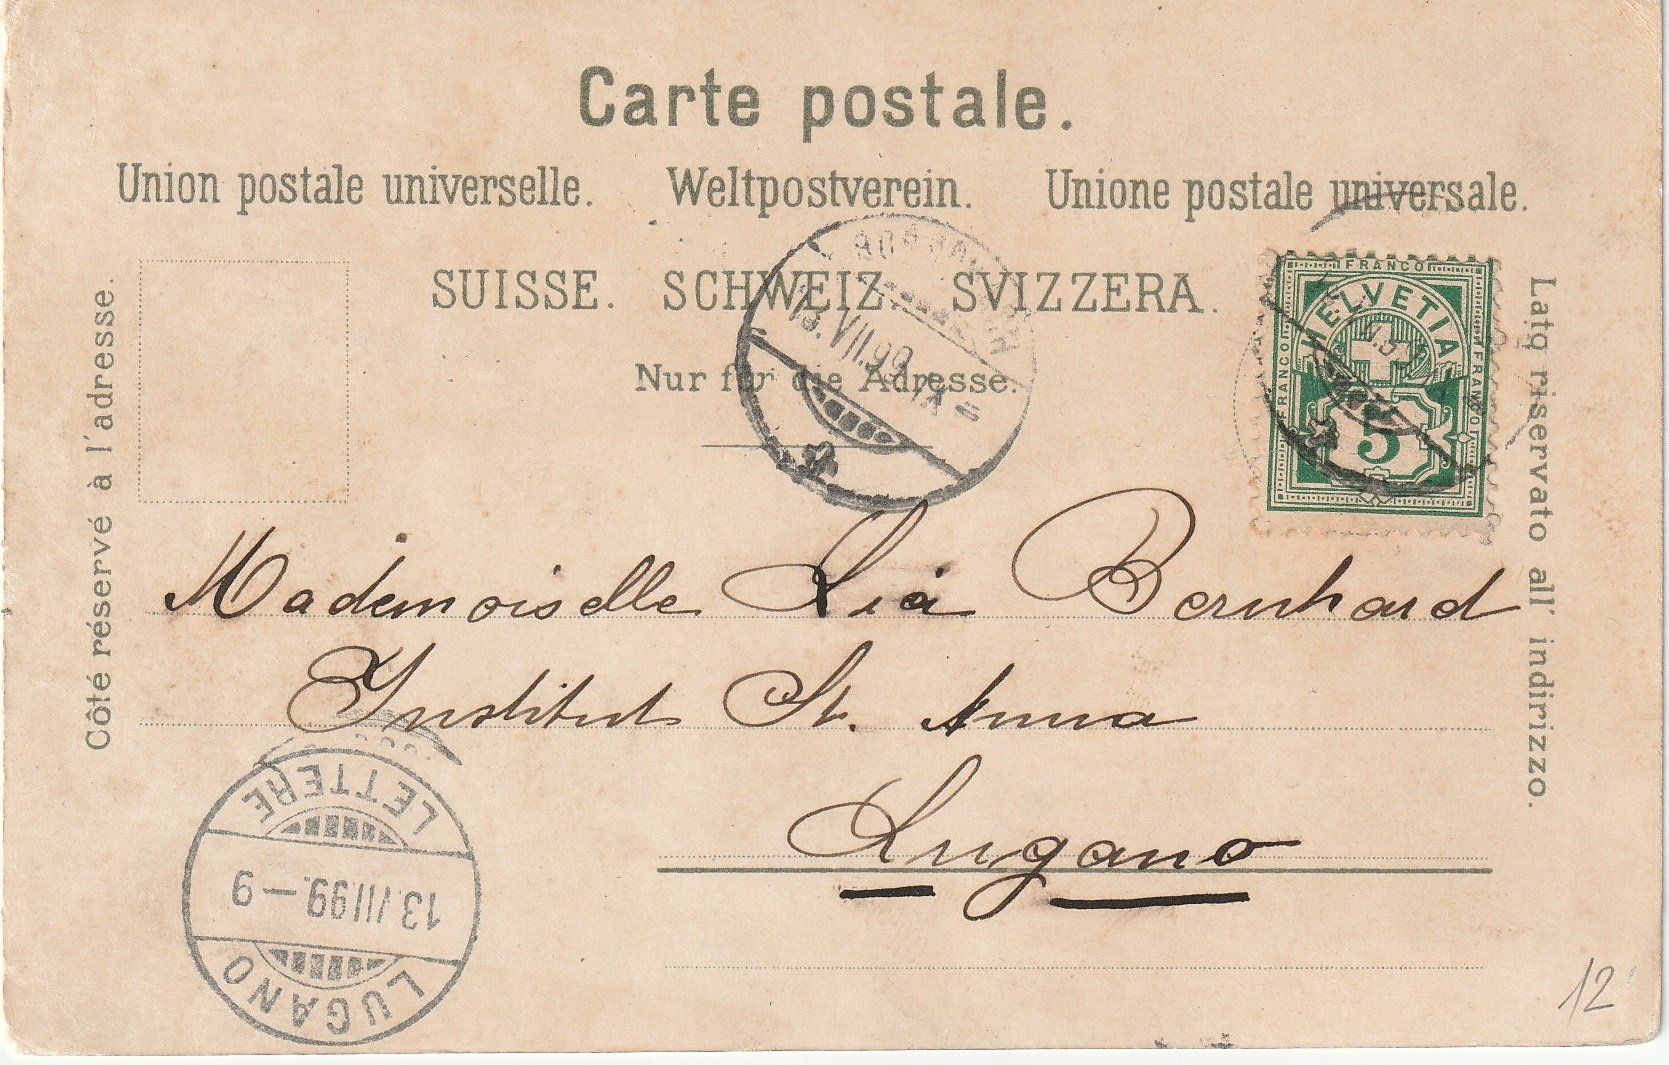 Carte postale.
Union postale universelle. Weltpostverein. Unione postale universale.
SUISSE. SCHWEIZ. SVIZZERA.
Nur für die Adresse.
Côté réservé à l'adresse.
Lato riservato all' indirizzo.
FRANCO
FRANCO
FRANCO
HELVETIA
5
Mademoiselle Lia Bernhard
Institut St. Anna
Lugano
LETTERE
LUGANO
12